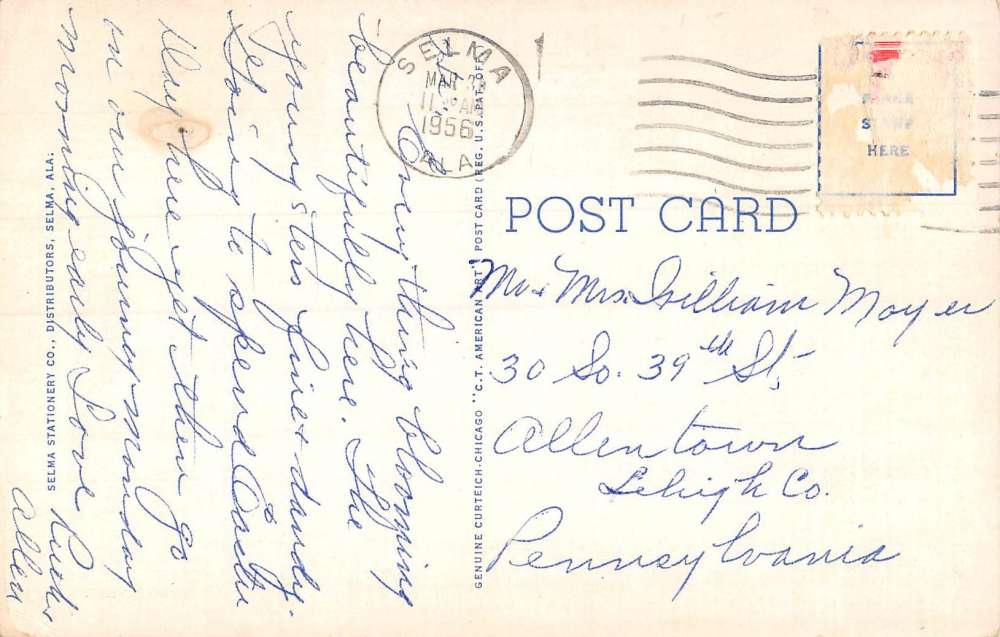 Everything blooming
beautifully here. The
youngsters fine & dandy.
Going to spend Easter
Day here yet then go
on our journey Monday
morning early Love Rud &
Allen
SELMA STATIONERY CO., DISTRIBUTORS, SELMA, ALA.
GENUINE CURTEICH-CHICAGO "C.T. AMERICAN ART" POST CARD (REG. U.S. PAT. OFF.)
SELMA
MAR 3
11 AM
1956
ALA.
PLACE
STAMP
HERE
POST CARD
Mr & Mrs. William Moyer
30 So. 39th St.
Allentown
Lehigh Co.
Pennsylvania